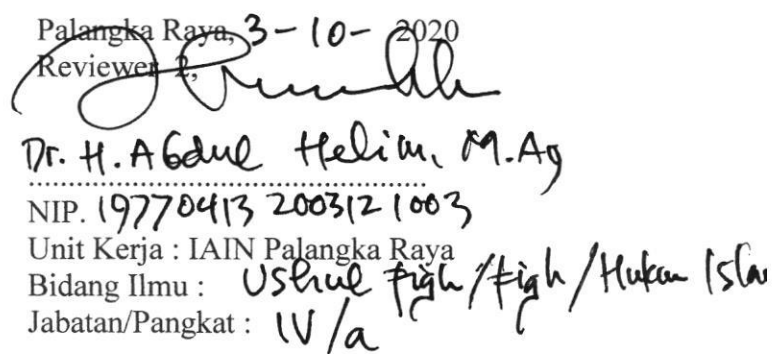 Palangka Raya, 3-10-2020
Reviewer 2,
Dr. H. Abdul Helim, M.Ag
NIP. 19770413 200312 1003
Unit Kerja : IAIN Palangka Raya
Bidang Ilmu : Ushul Fiqh/Fiqh/Hukum Isla
Jabatan/Pangkat : IV/a